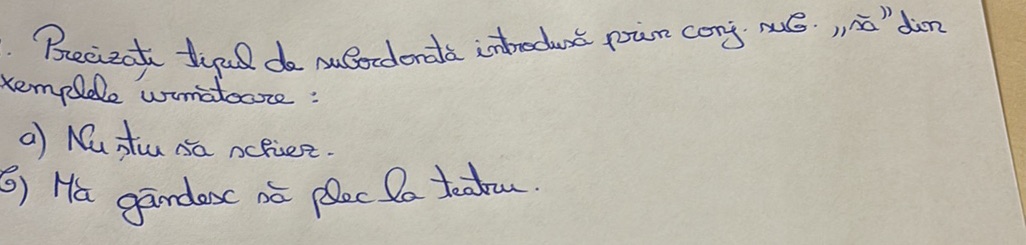 . Precizați tipul de subordonată introdusă prin conj. sub. „să” din
xemplele următoare :
a) Nu știu să schiez.
b) Mă gândesc să plec la teatru.